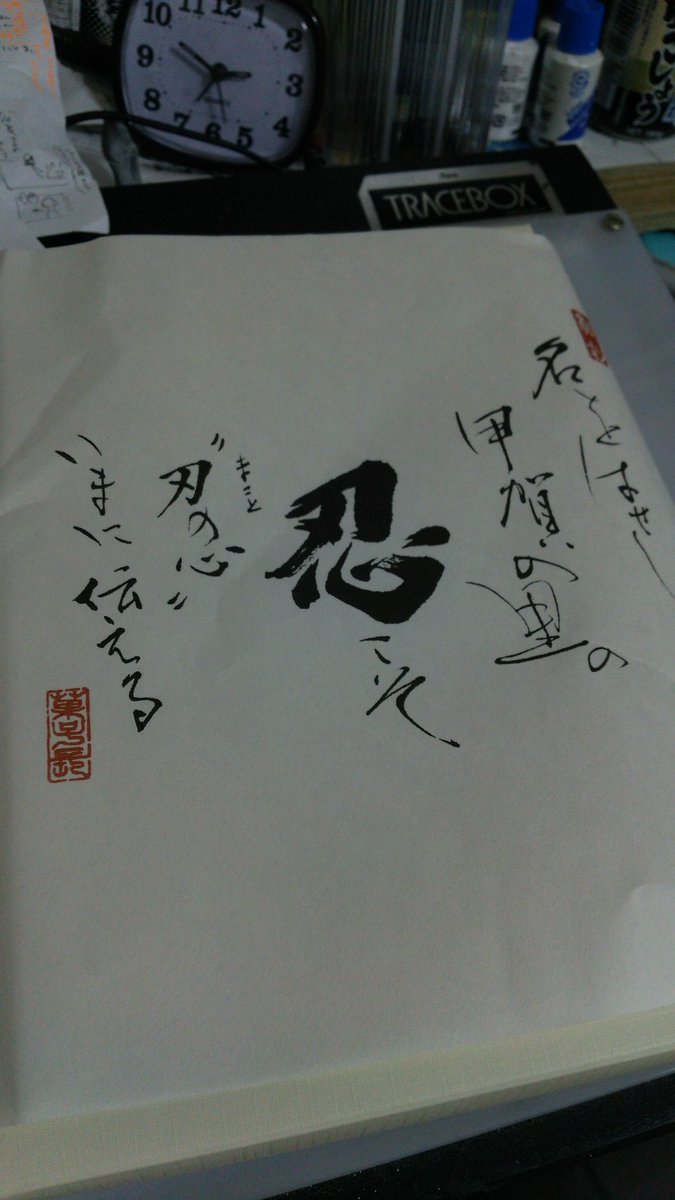 10 11 12 1 2
9 3
8 4
7 6 5
QUARTZ
TRACEBOX
しょう
名
甲賀の里の
忍こそ
まこと
"刃の心"
いまに伝える